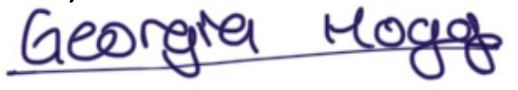 Georgia Hogg